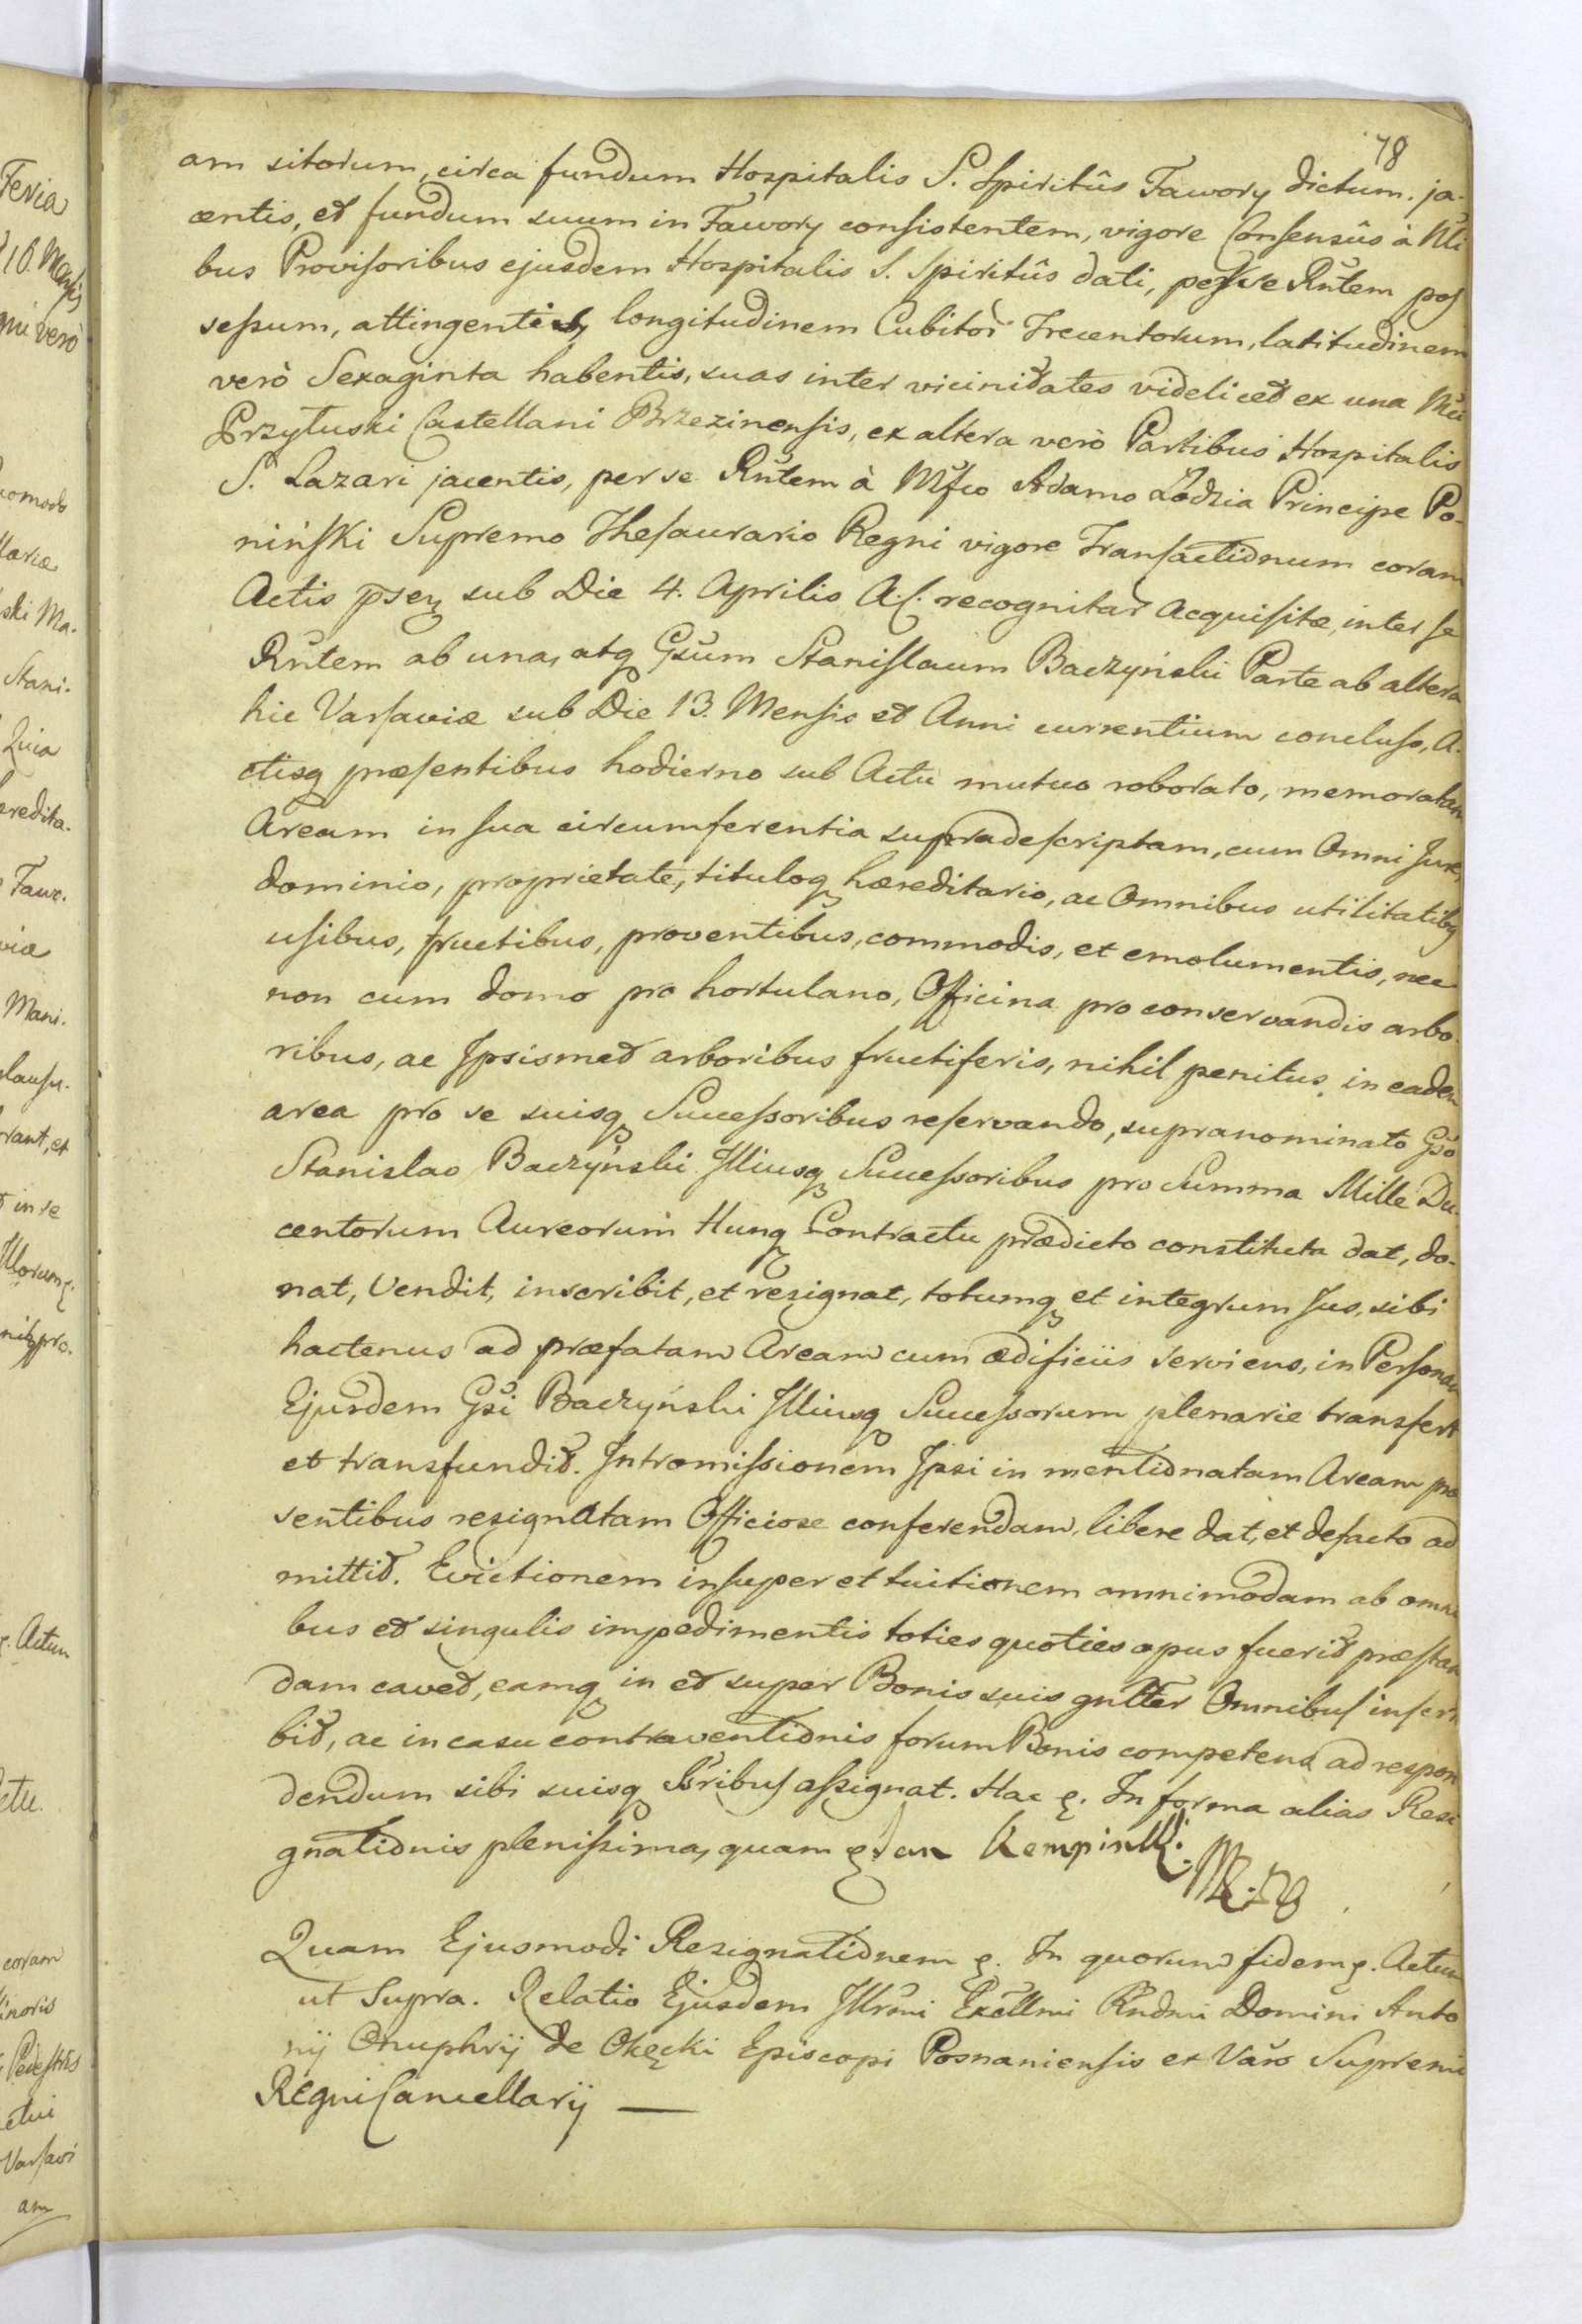 78
am sitorum, circa fundum Hospitalis S. Spiritûs Fawory dictum. ja-
centis, et fundum suum in Fawory consistentem, vigore Consensûs à Nli
bus Provisoribus ejusdem Hospitalis S. Spiritûs dati, per se Rñtem pos
sessum, attingentis, longitudinem Cubitor Trecentorum, latitudinem
verò Sexaginta habentis, suas inter vicinitates videlicet ex una Mci
Przyłuski Castellani Brzezinensis, ex altera verò Partibus Hospitalis
S. Lazari jacentis, per se Rñtem à Mfco Adamo Łodzia Principe Po-
niński Supremo Thesaurario Regni vigore Transactionum coram
Actis psen sub Die 4. Aprilis A. C. recognitar Acquisitæ, inter se
Rñtem ab una, atq Gsum Stanislaum Baczyński Parte ab altera
hic Varsaviæ sub Die 13. Mensis et Anni currentium concluso, A-
ctisq præsentibus hodierno sub Actu mutuo roborato, memoratam
Aream in sua circumferentia supradescriptam, cum Omni Jure,
dominio, proprietate, tituloq hæreditario, ac Omnibus utilitatibq
usibus, fructibus, proventibus, commodis, et emolumentis, nec
non cum domo pro hortulano, Officina pro conservandis arbo-
ribus, ac Ipsismet arboribus fructiferis, nihil penitus in eadem
area pro se suisq Successoribus reservando, supranominato Gso
Stanislao Baczyński Illiusq Successoribus pro Summa Mille Du-
centorum Aureorum Hung Contractu prædicto constituta dat, do-
nat, Vendit, inscribit, et resignat, totumq et integrum Jus, sibi
hactenus ad præfatam Aream cum ædificiis serviens, in Personam
Ejusdem Gsi Baczyński Illiusq Successorum plenarie transfert
et transfundit. Intromissionem Ipsi in mentionatam Aream præ
sentibus resignatam Officiose conferendam, libere dat, et defacto ad
mittit. Evictionem insuper et tuitionem omnimodam ab omni
bus et singulis impedimentis toties quoties opus fuerit præstan
dam cavet, eamq in et super Bonis suis gnlter Omnibus inscri
bit, ac in casu contraventionis forum Bonis competens ad respon
dendum sibi suisq Ssribus assignat. Hac e. In forma alias Resi
gnationis plenissima, quam e. Jan Kempinski
Quam Ejusmodi Resignationem e. In quorum fidem e. Actum
ut Supra. Relatio Ejusdem Illrmi Excllmi Rndmi Domini Anto
nij Onuphrij de Okęcki Episcopi Posnaniensis et Vars Supremi
Regni Cancellarij —